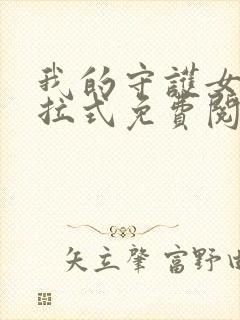 我的守護女
拉式免費閱
矢立肇 富野由